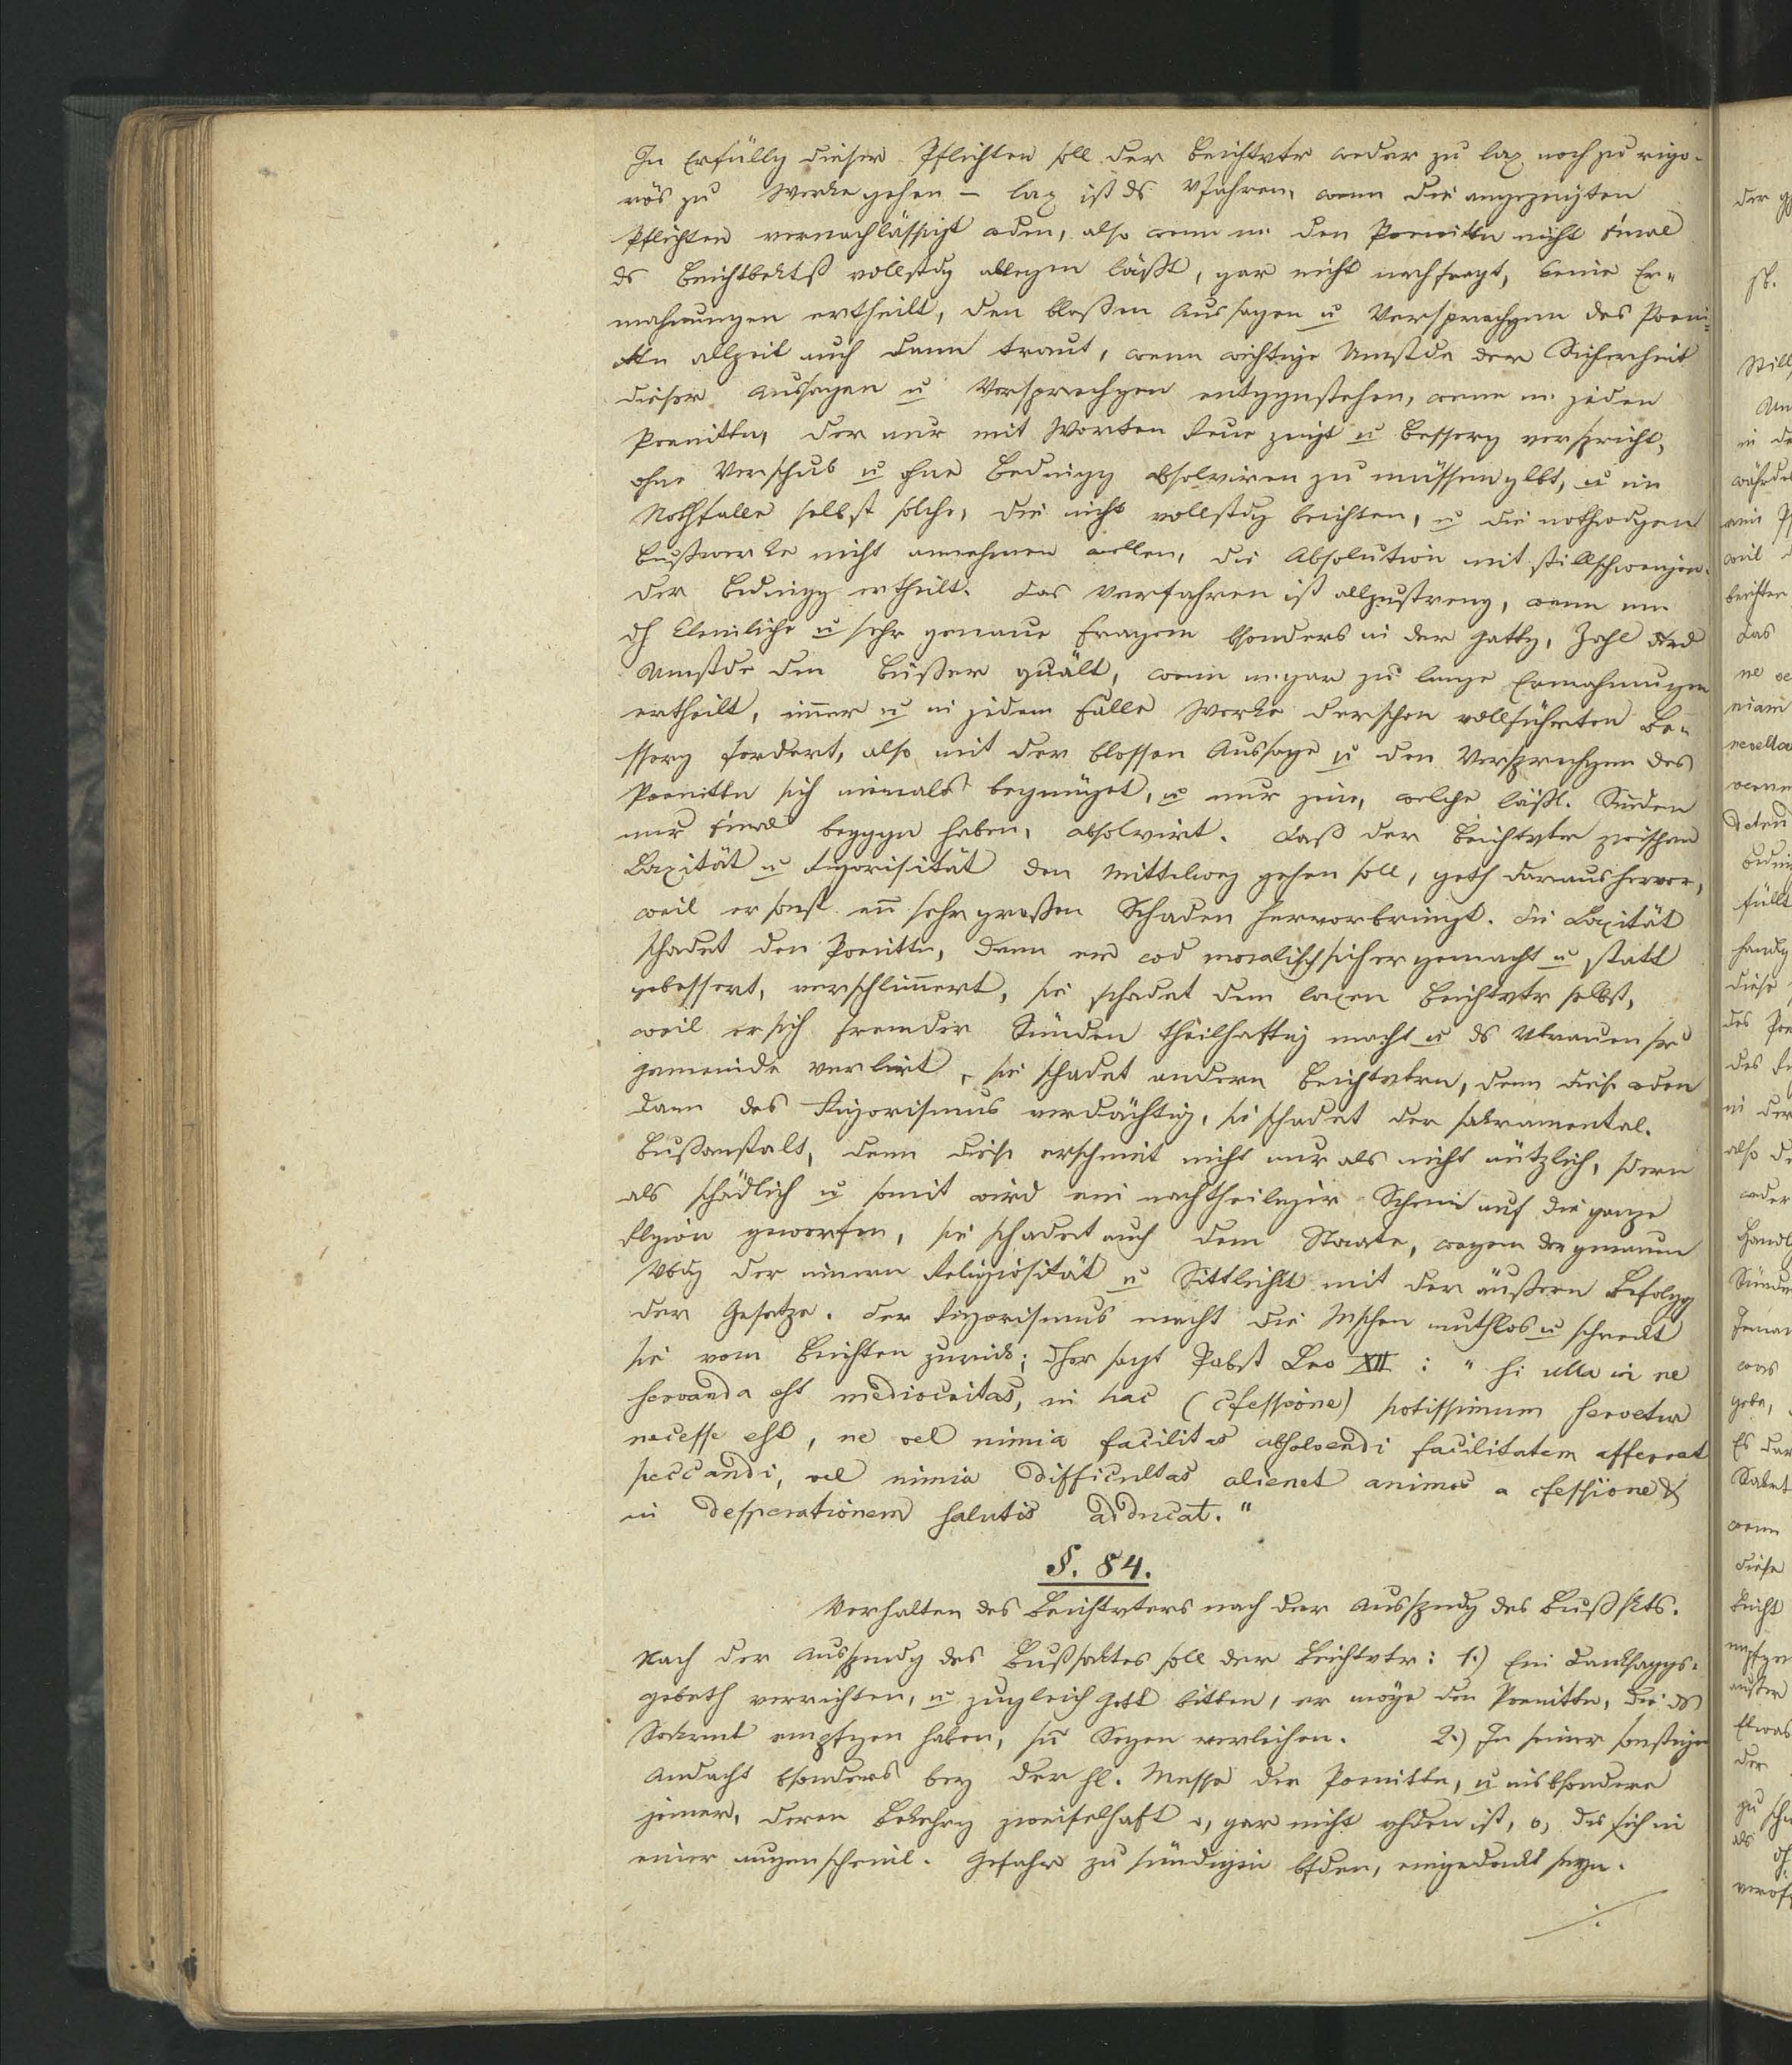 In Erfüllg dieser Pflichten soll der Beichtvtr weder zu lax noch zu rigo-
rös zu Werke gehen – lax ist ds Vfahren, wenn die angezeigten
Pflichten vernachlässigt wden, also wenn m. den Poenittn nicht einmal
ds Beichtbektß vollstdg ablegen läßt, gar nicht nachfragt, keine Er-
mahnungen ertheilt, den bloßen Aussagen u Versprechgen des Poeni-
ttn allzeit auch dann traut, wenn wichtige Umstde der Sicherheit
dieser Aussagen u Versprechgen entggnstehen, wenn m. jeden
Poenittn, der nur mit Worten Reue zeigt u Besserg verspricht,
ohne Verschub u ohne Bedingg absolviren zu müssen glbt, u im
Nothfalle selbst solche, die nicht vollstdg beichten, u die nothwdgen
Bußwerke nicht annehmen wollen, die Absolution mit stillschweigen-
der Bedingg ertheilt. Das Verfahren ist allzustreng, wenn m.
dh kleinliche u sehr genaue Fragen bsonders in der Gattg, Zahl
Umstde den Büßer quält, wenn m. gar zu lange Ermahnungen
ertheilt, immer u in jedem Falle Werke der schon vollführten Be-
sserg fordert, also mit der blossen Aussage u den Versprechgen des
Poenittn sich niemals begnüget, u nur jene, welche läßl. Sünden
nur einmal beggen haben, absolvirt. Daß der Beichtvter zwischen
Laxität u Rigorisität den Mittelweg gehen soll, geth daraus hervor,
weil er sonst enn sehr großen Schaden hervorbringt. Die Laxität
schadet den Poenittn, denn er wd moralisch sicher gemacht u statt
gebessert, verschlimmert, sie schadet dem laxen Beichtvtr selbst,
weil er sich fremder Sünden theilhaftig macht u ds Vtrauen sr
Gemeinde verlirt, sie schadet andern Beichtvtrn, denn diese wden
dann des Rigorismus verdächtig, sie schadet der sakramental.
Bußanstalt, denn diese erscheint nicht nur als nicht nützlich, sdern
als schädlich u somit wird ein nachtheiliger Schein auf die ganze
Rlgion geworfen, sie schadet auch dem Staate, wegen der genauen
Vbdg der innern Religiosität u Sittlichkt mit der äußern Befolgg
der Gesetze. Der Rigorismus macht die Mschen muthlos u schreckt
sie vom Beichten zurück; dher sagt Pabst Leo XII : " si ulla in re
servanda est mediocritas, in hac (cfessione) potissimum servetur
necesse est, ne vel nimia facilitas absolvendi facilitatem afferat
peccandi, vel nimia difficultas alienet animos a cfessione &
in desperationem salutis adducat."
§. 84.
Verhalten des Beichtvters nach der Ausspendg des Bußskts.
Nach der Ausspendg des Bußsaktes soll der Beichtvtr: 1.) Ein Danksaggs-
gebeth verrichten, u zugleich Gott bitten, er möge den Poenittn, die ds
Sakrmt empfgen haben, sn Segen verleihen. 2.) In seiner sonstigen
Andacht bsonders bey der hl. Messe der Poenittn, u insbsondere
jener, deren Bekehrg zweifelhaft o, gar nicht vhden ist, o, die sich in
einer augenscheinl. Gefahr zu sündigen bfden, eingedenkt seyn.